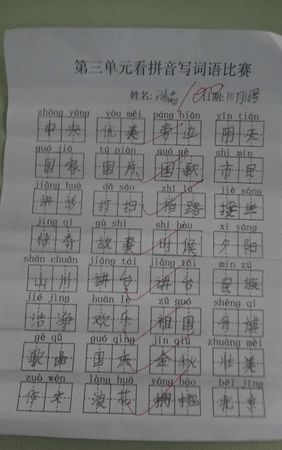 第三单元看拼音写词语比赛
姓名: 日期:10月16号
zhōng yāng yōu měi páng biān yīn tiān
中央 优美 旁边 阴天
guó jiā tú piàn guó gē shì mín
国家 图片 国歌 市民
jiǎng huà dǎ sǎo zhǐ lù jiē sòng
讲话 打扫 指路 接送
jīng qí gù shi shí hòu xī yáng
惊奇 故事 时候 夕阳
shān chuān jiǎng tái jiǎng tái mín zú
山川 讲台 讲台 民族
jié jìng huān lè zǔ guó shēng qí
洁净 欢乐 祖国 升旗
gē qǔ guó qìng jīn qiū zhuàng měi
歌曲 国庆 金秋 壮美
zuò wén làng huā yōng bào běi jīng
作文 浪花 拥抱 北京